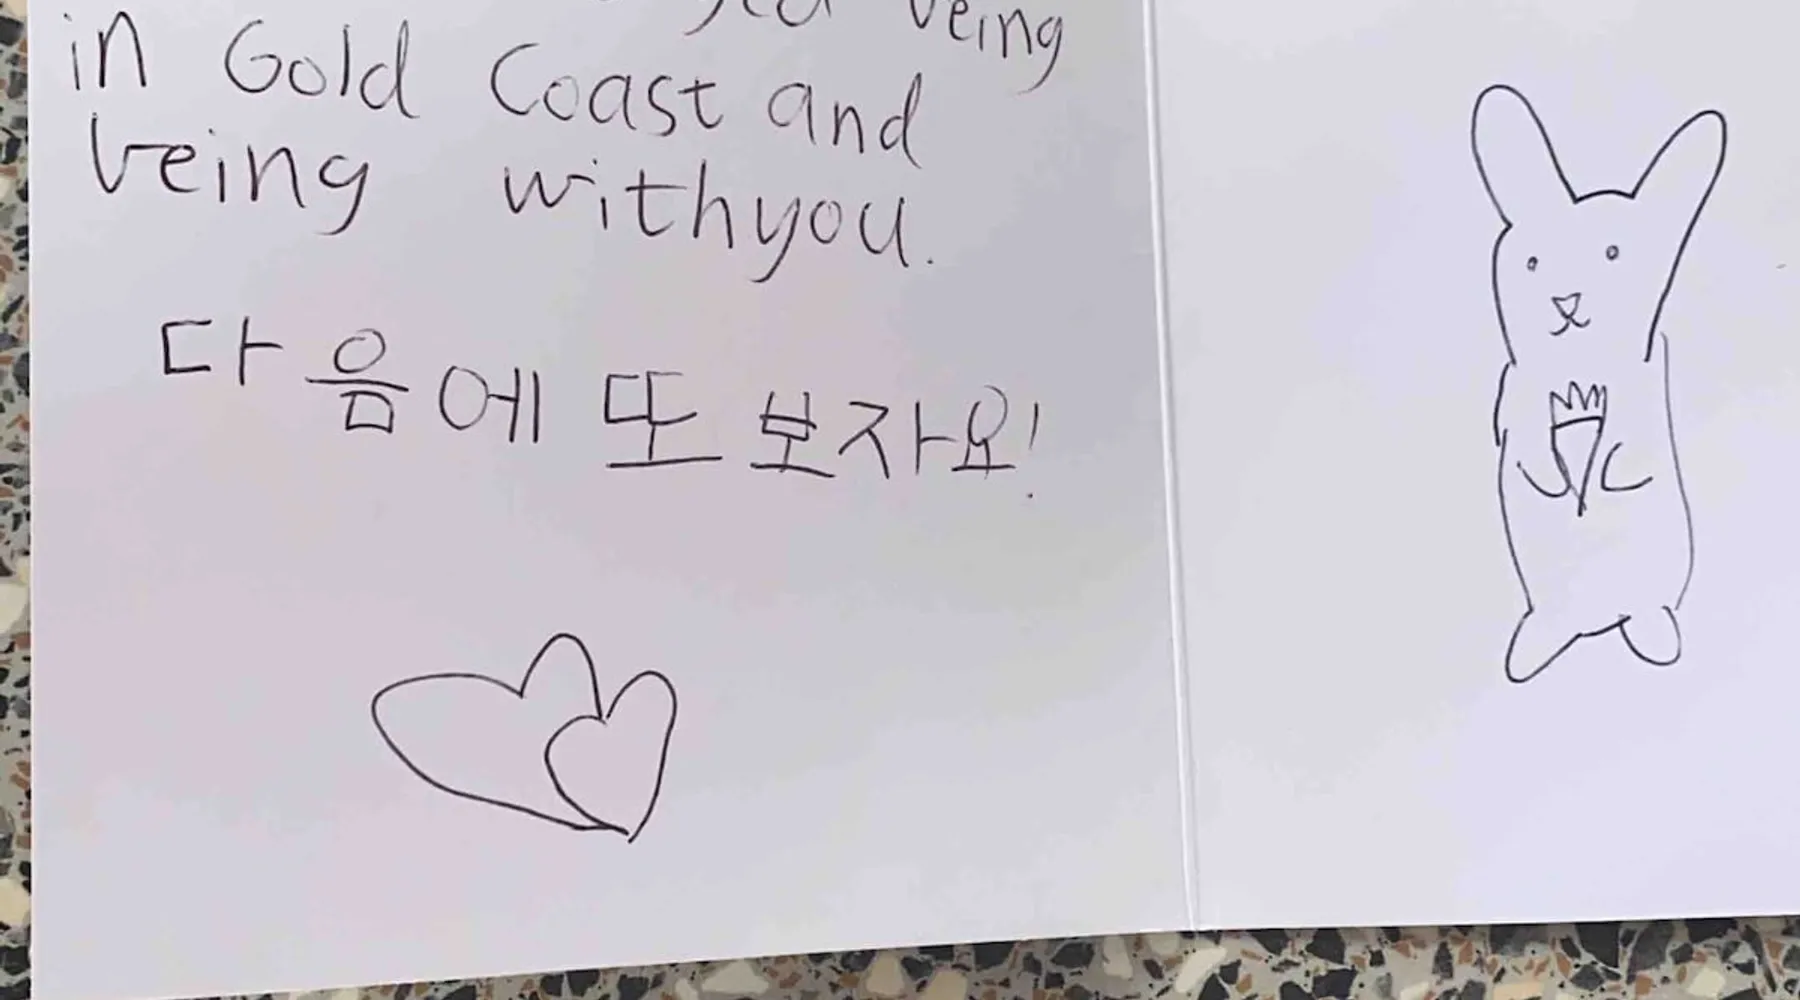 being
in Gold Coast and
being withyou.
다음에 또 보자요!